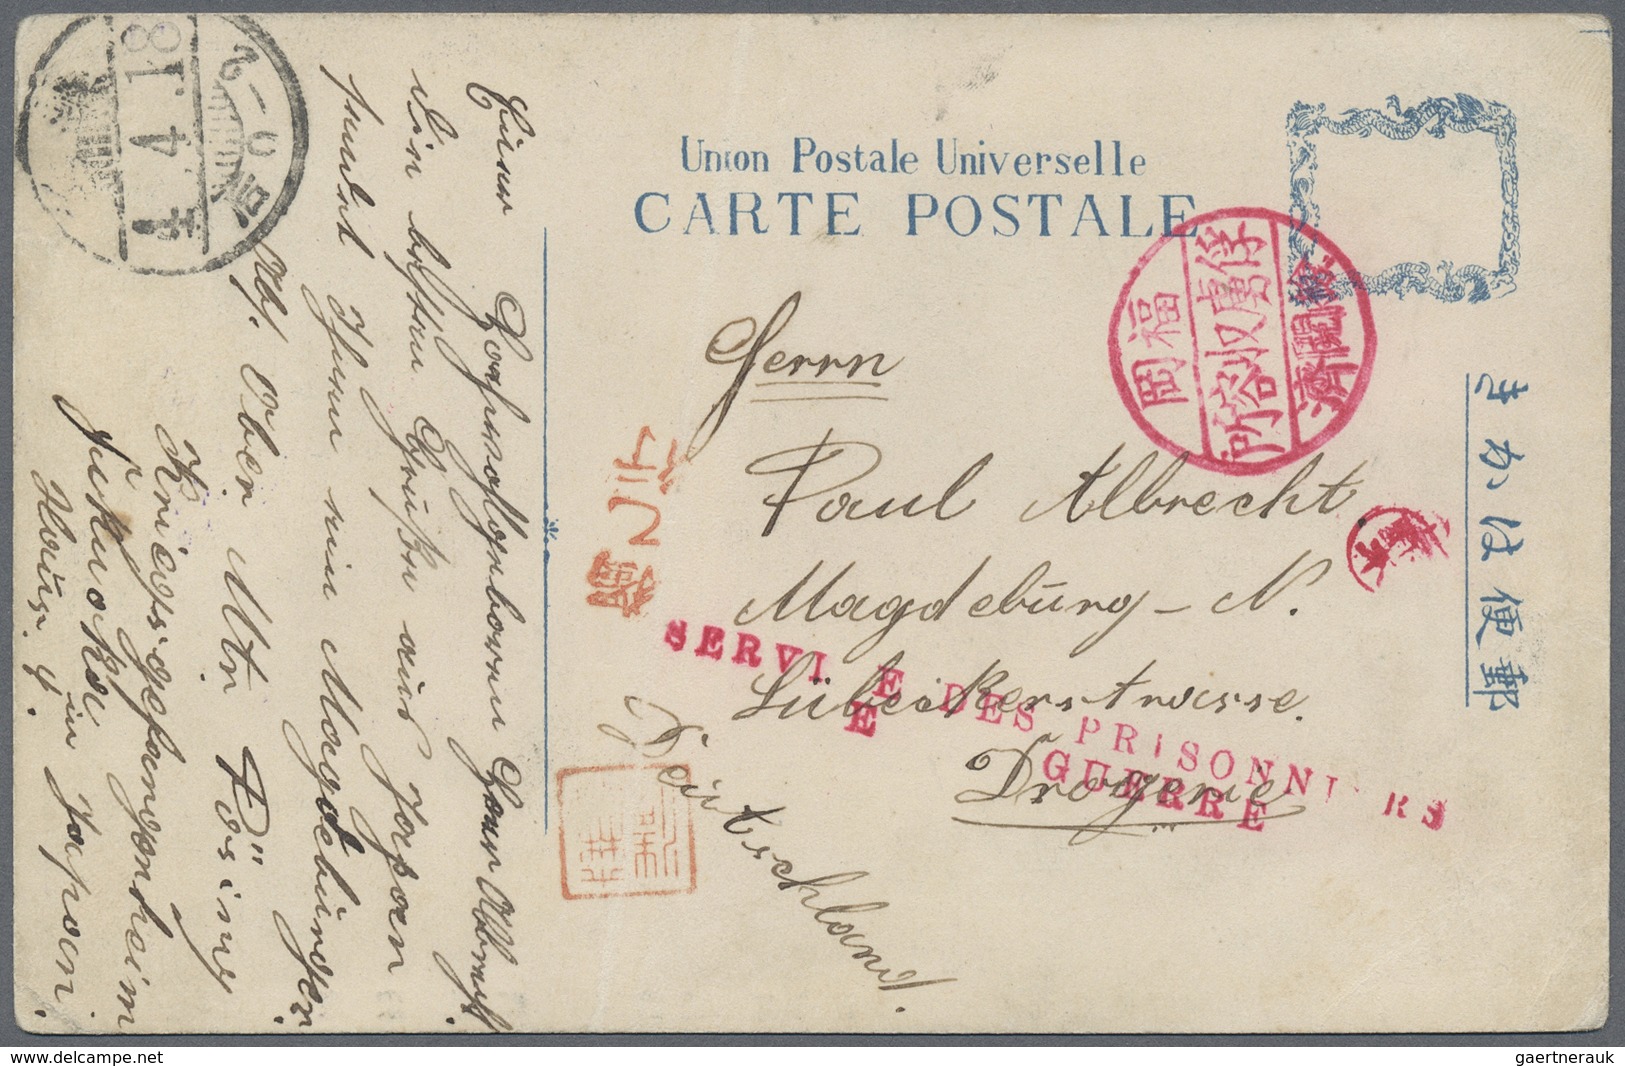 Union Postale Universelle
CARTE POSTALE
きかは便郵
福岡
俘虜収容所
檢閲濟
Herrn
Paul Albrecht.
Magdeburg-N.
Lübeckerstrasse.
Drogerie
Deutschland.
SERVI E DES PRISONNI RS
E GUERRE
4.4.18
Einer Hochwohlgeborenen Herrn Albrecht
die besten Grüßen aus Japan
sendet Ihnen ein Magdeburger.
Abs. Ober Mtr. Rösing
Kriegsgefangenheim
Fukuoka in Japan.
Haus. 4.
gaertnerauk